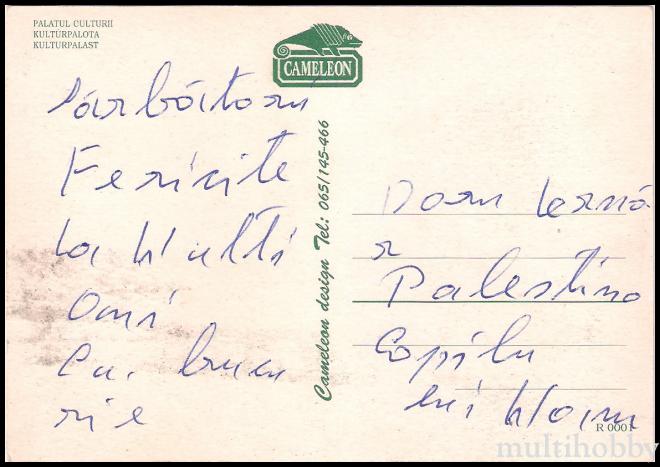 PALATUL CULTURII
KULTÚRPALOTA
KULTURPALAST
CAMELEON
Cameleon design Tel: 065/145-466
Sárbátori
Fericite
la Multi
Ani
Cu. bucu
rie
Doru
r
Palestina
Copilu
lui
R 0001
multihobby